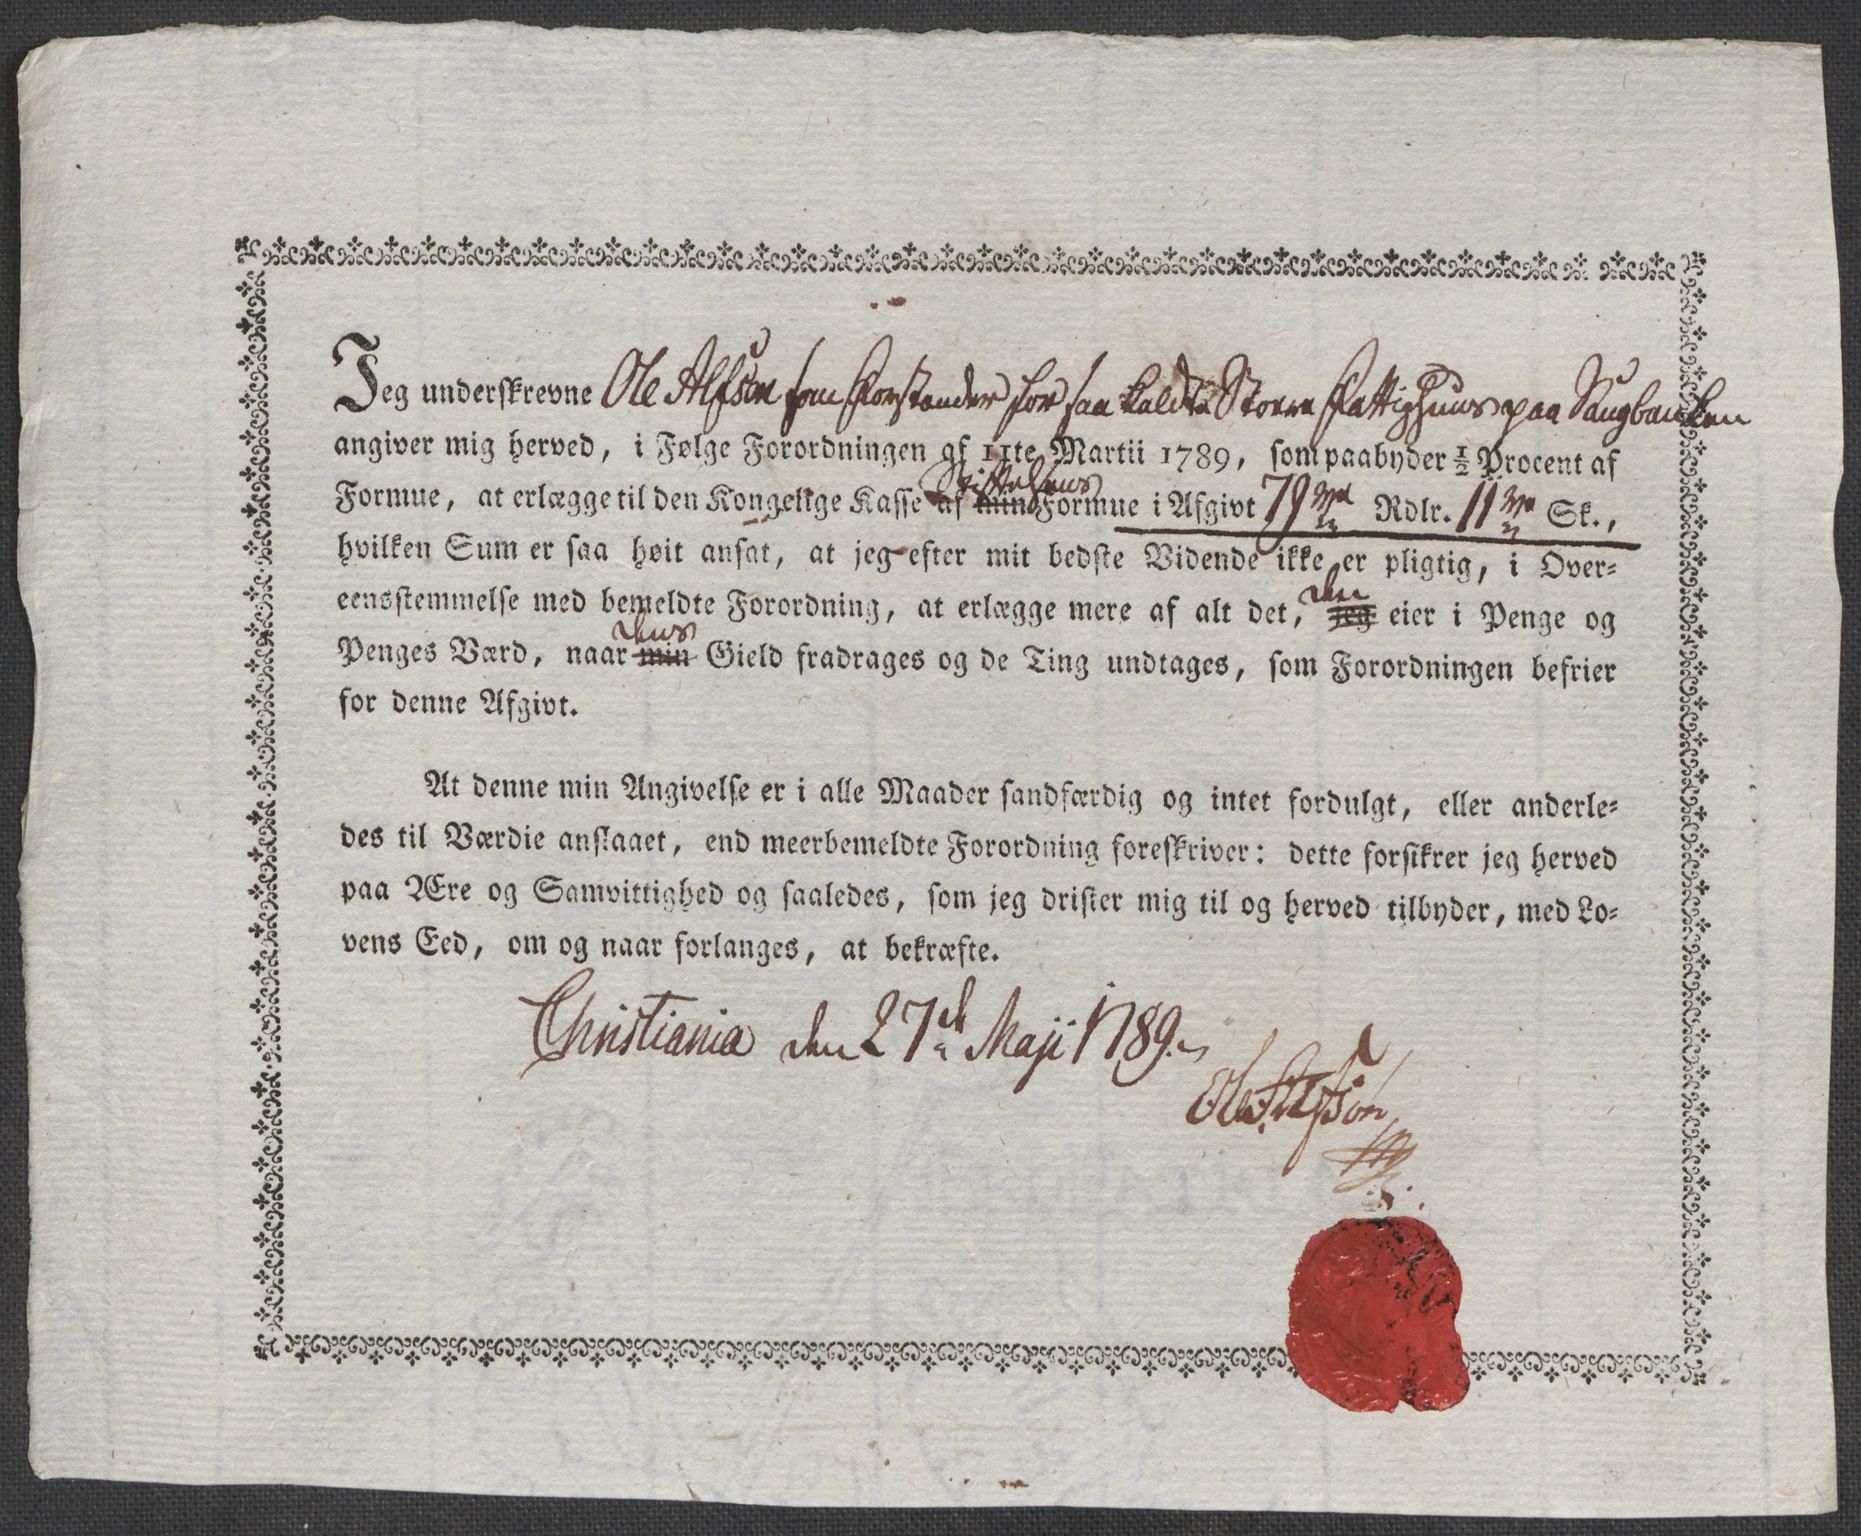 Jeg underskrevne Ole Alfsøn som Forstander for saa kaldte Store Fattighuus paa Saugbanken
angiver mig herved, i Følge Forordningen af 11te Martii 1789, som paabyder ½ Procent af
Formue, at erlægge til den Kongelige Kasse af min Formue i Afgivt 79 Rdlr. 11 Sk.,
hvilken Sum er saa høit ansat, at jeg efter mit bedste Vidende ikke er pligtig, i Over=
den
eensstemmelse med bemeldte Forordning, at erlægge mere af alt det, jeg eier i Penge og
dens
Penges Værd, naar min Gield fradrages og de Ting undtages, som Forordningen befrier
for denne Afgivt.
At denne min Angivelse er i alle Maader sandfærdig og intet fordulgt, eller anderle=
des til Værdie anslaaet, end meerbemeldte Forordning foreskriver: dette forsikrer jeg herved
paa Ære og Samvittighed og saaledes, som jeg drister mig til og herved tilbyder, med Lo=
vens Eed, om og naar forlanges, at bekræfte.
Christiania den 27de Maji 1789.
Ole Alfsøn